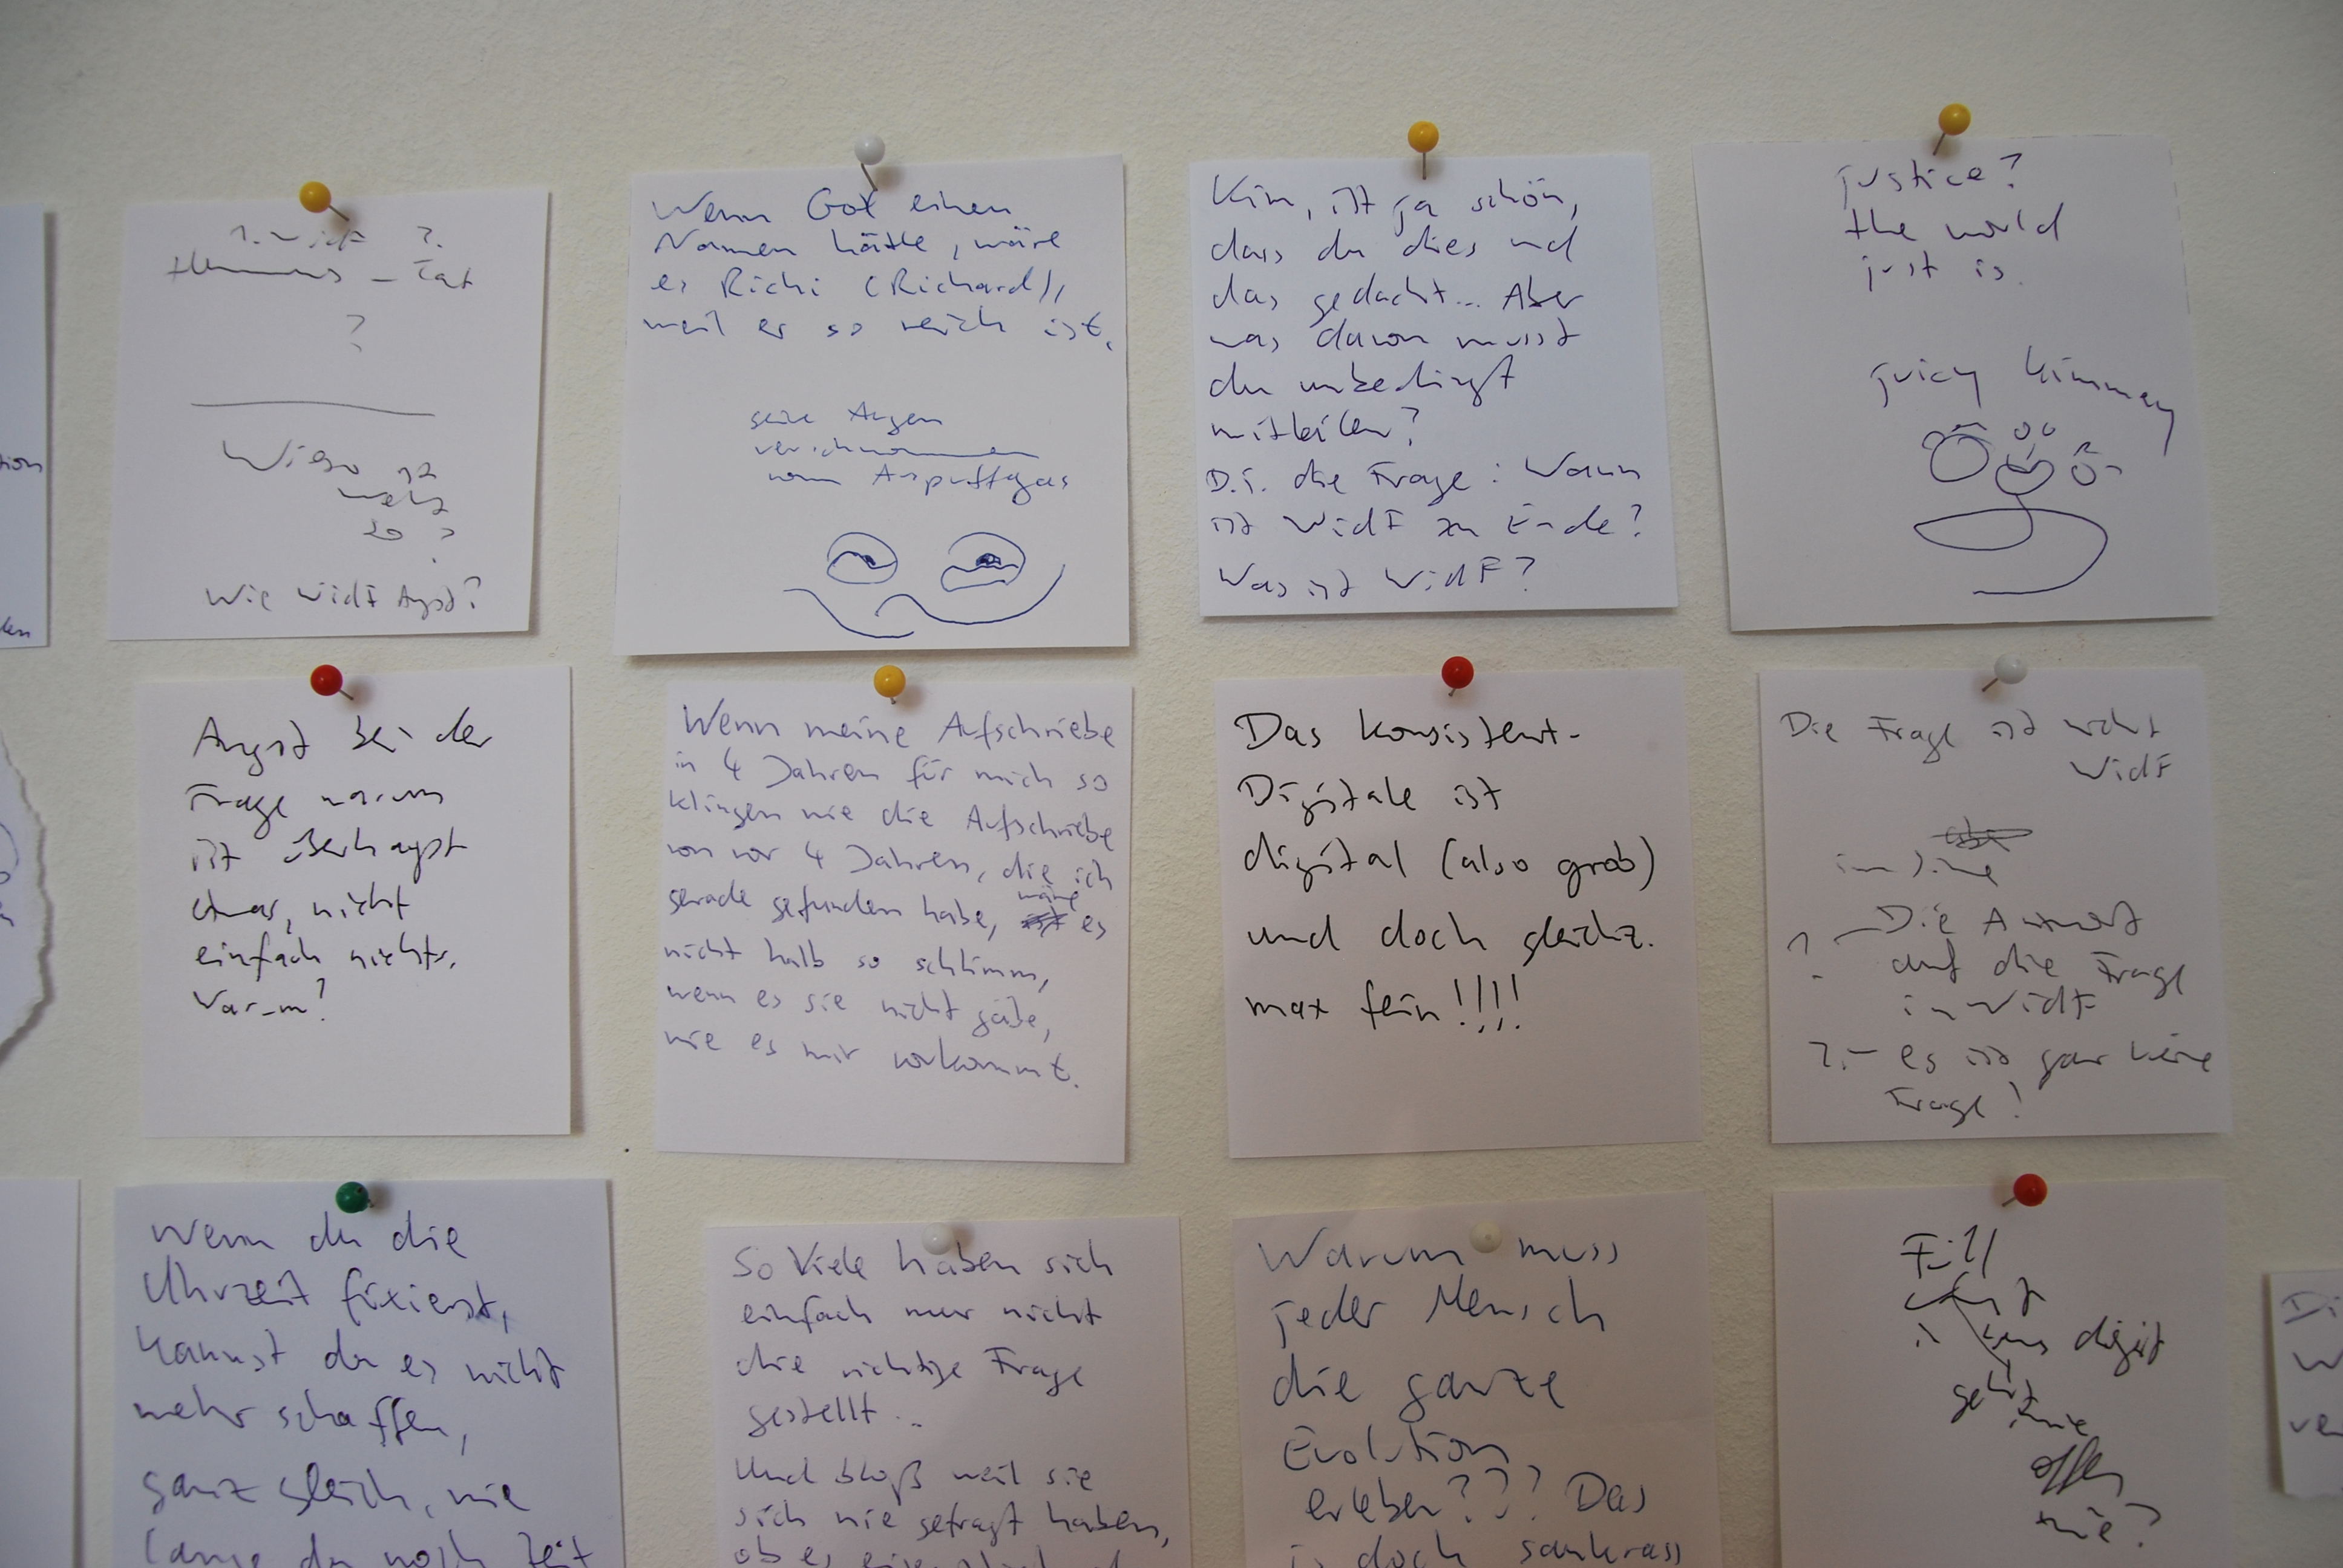 ?
Wieso
so ?
Wie WidF Angst?
Wenn Got einen
Namen hätte, wäre
es Richi (Richard),
weil er so reich ist.
seine Augen
verschwommen
vom Auspuffgas
Kim, ist ja schön,
dass du dies und
das gedacht... Aber
was davon musst
du unbedingt
mitteilen?
D.i. die Frage: Wann
ist WidF zu Ende?
Was ist WidF?
justice?
the world
just is.
juicy kimmey
Angst bei der
Frage warum
ist überhaupt
etwas, nicht
einfach nichts.
Warum?
Wenn meine Aufschriebe
in 4 Jahren für mich so
klingen wie die Aufschriebe
von vor 4 Jahren, die ich
gerade gefunden habe, wäre es
nicht halb so schlimm,
wenn es sie nicht gäbe,
wie es mir vorkommt.
Das Konsistent-
Digitale ist
digital (also grob)
und doch gleichz.
max fein!!!!
Die Frage ist nicht
WidF
? — Die Antwort
auf die Frage
in WidF
?. — es ist gar keine
Frage!
Wenn du die
Uhrzeit fixierst,
kannst du es nicht
mehr schaffen,
ganz gleich, wie
lange du noch Zeit
So Viele haben sich
einfach nur nicht
die richtige Frage
gestellt...
Und bloß weil sie
sich nie gefragt haben,
ob es
Warum muss
jeder Mensch
die ganze
Evolution
erleben??? Das
is doch saukrass
Fill
digit
geht
offen
tion